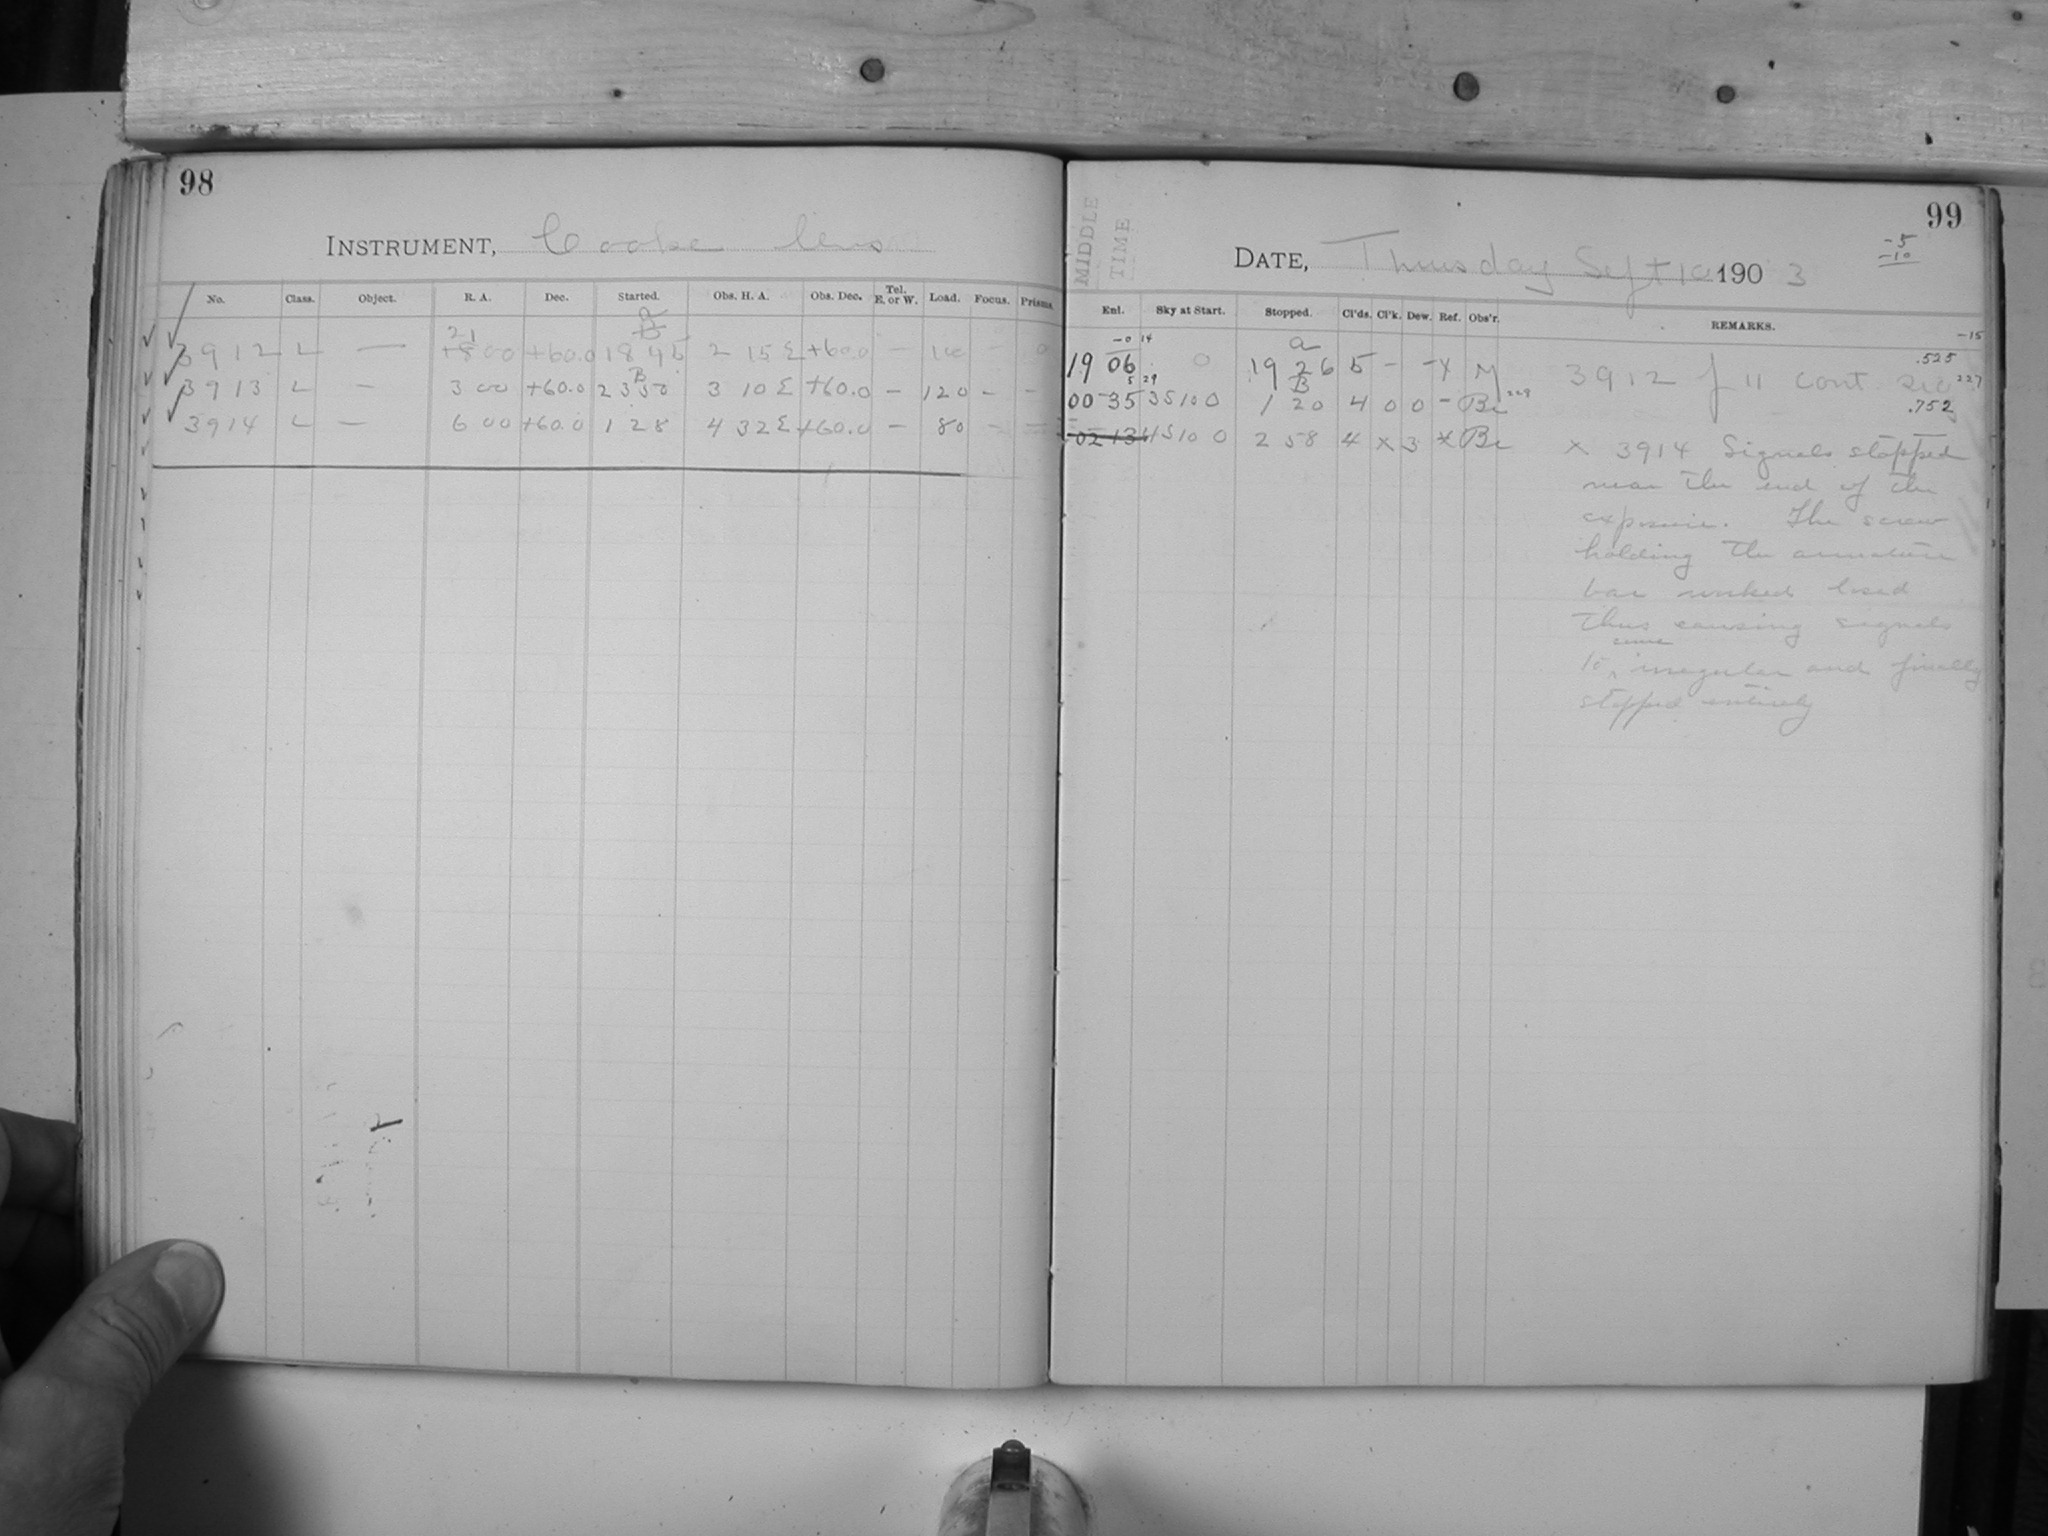 98
INSTRUMENT, Cooke lens
No. Class. Object. R. A. Dec. Started. Obs. H. A. Obs. Dec. Tel. E. or W. Load. Focus. Prisms.
21
3912 L — 18 00 +60.0 18 45 2 15 E +60.0 –
B
3913 L — 3 00 +60.0 23 50 3 10 E +60.0 – 120 – –
3914 L — 6 00 +60.0 1 28 4 32 E +60.0 – 80 – –
99
MIDDLE
TIME
DATE, Thursday Sept 10 1903
-5
-10
Enl. Sky at Start. Stopped. Cl'ds. Cl'k. Dew. Ref. Obs'r. REMARKS.
-15
-0 14
a
.525
19 06 0 19 26 5 – M 3912 f 11 cont. sec 227
5 29
B
00 35 35 10 0 1 20 4 0 0 – Be
.752
02 13 45 10 0 2 58 4 x 3 x Be x 3914 Signals stopped
near the end of the
exposure. The screw
holding the armature
bar worked loose
thus causing signals
some
to irregular and finally
stopped entirely